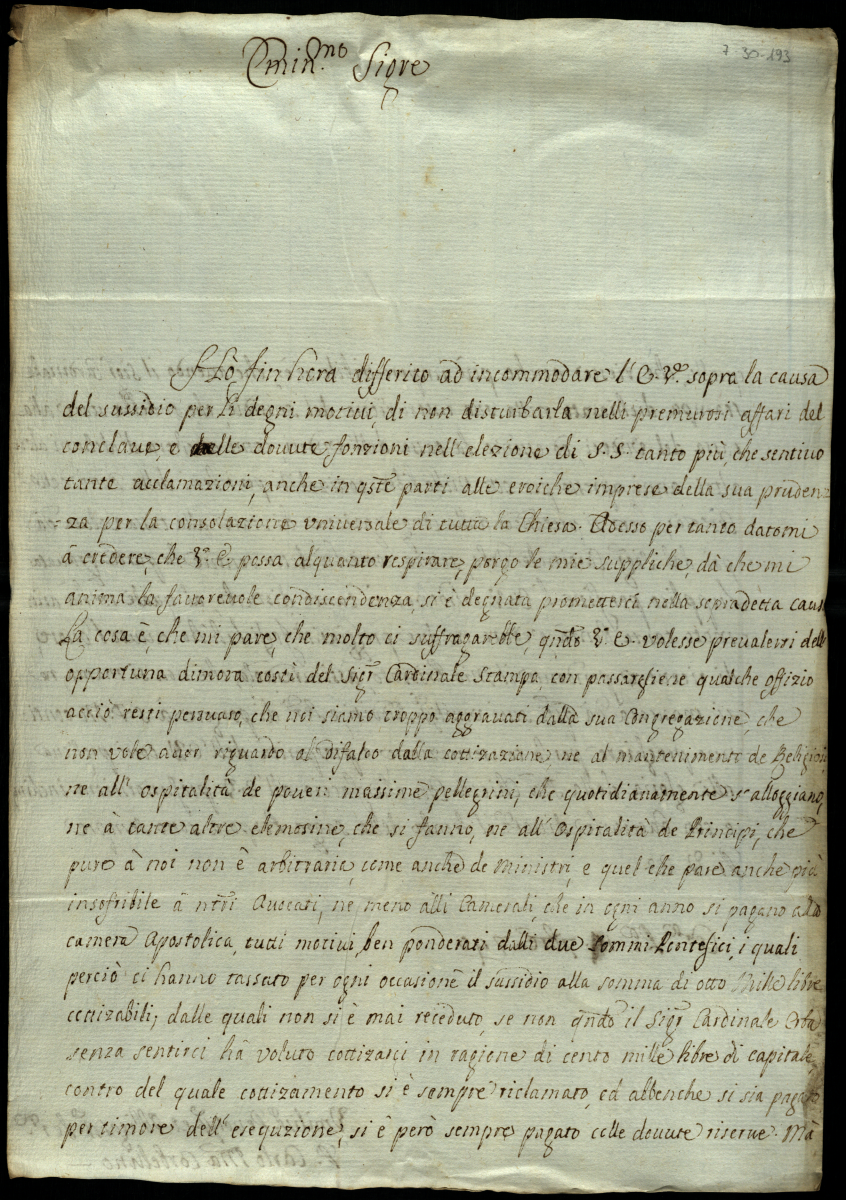 7 30-193
Emin.mo Sigre
Hò fin hora differito ad incommodare l'E. V.a sopra la causa
del sussidio per li degni motivi, di non disturbarla nelli premurosi affari del
conclave, e delle dovute fonzioni nell'elezione di S. S. tanto più, che sentivo
tante acclamazioni, anche in qste parti alle eroiche imprese della sua pruden-
=za per la consolazione universale di tutta la Chiesa. Adesso per tanto datomi
à credere, che V.a E. possa alquanto respirare, porgo le mie suppliche, dà che mi
anima la favorevole condiscendenza, si è degnata prometterci nella sopradetta causa
La cosa è, che mi pare, che molto ci suffragarebbe, qndo V.a E. volesse prevalersi dell'
opportuna dimora costì del Sigr Cardinale Stampa, con passargliene qualche offizio
acciò resti persuaso, che noi siamo troppo aggravati dalla sua Congregazione, che
non vole aver riguardo al difalco dalla cottizazione ne al mantenimento de Religiosi,
ne all'ospitalità de poveri massime pellegrini, che quotidianamente s'alloggiano,
ne à tante altre elemosine, che si fanno, ne all'Ospitalità de Principi, che
pure à noi non è arbitraria, come anche de Ministri, e quel che pare anche più
insofribile à ntri Avocati, ne meno alli Camerali, che in ogni anno si pagano alla
camera Apostolica, tutti motivi ben ponderati dalli due sommi Pontefici, i quali
perciò ci hanno tassato per ogni occasione il sussidio alla somma di otto mille libre
cottizabili; dalle quali non si è mai receduto, se non qndo il Sigr Cardinale
senza sentirci hà voluto cottizarci in ragione di cento mille libre di capitale,
contro del quale cottizamento si è sempre riclamato, ed abbenche si sia pagato
per timore dell'esequzione, si è però sempre pagato colle dovute riserve. Mà